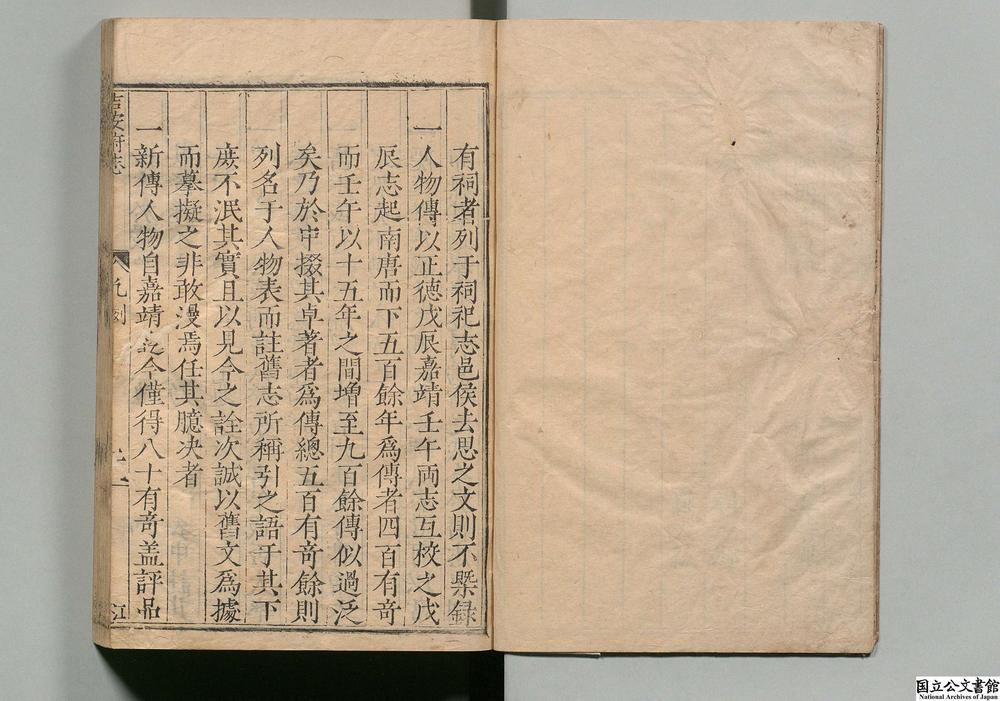 有祠者列于祠祀志邑侯去思之文則不槩録
一人物傳以正德戊辰嘉靖壬午兩志互校之戊
辰志起南唐而下五百餘年爲傳者四百有竒
而壬午以十五年之間增至九百餘傳似過泛
矣乃於中掇其卓著者爲傳總五百有竒餘則
列名于人物表而註舊志所稱引之語于其下
庻不泯其實且以見今之詮次誠以舊文爲據
而摹擬之非敢漫焉任其臆决者
一新傳人物自嘉靖迄今僅得八十有竒盖評品
吉安府志
凡例
江
国立公文書館
National Archives of Japan